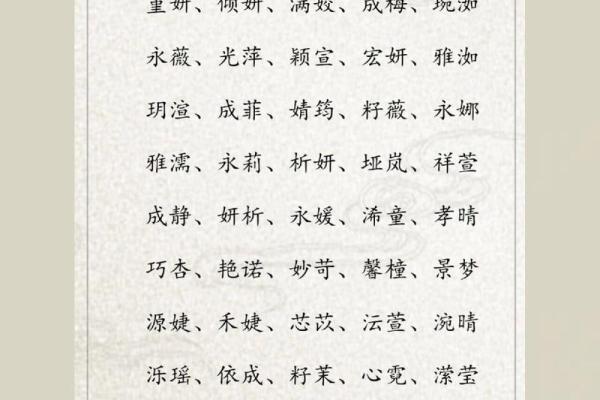 童妍、倾妍、满姣、成梅、琬洳
永薇、光萍、颖宣、宏妍、雅洳
玥渲、成菲、婧筠、籽薇、永娜
雅濡、永莉、析妍、垭岚、祥萱
成静、妍析、永媛、浠童、孝晴
巧杏、艳诺、妙苛、馨橦、景梦
源婕、禾婕、芯苡、沄萱、涴晴
泺瑶、依成、籽茉、心霓、潆莹